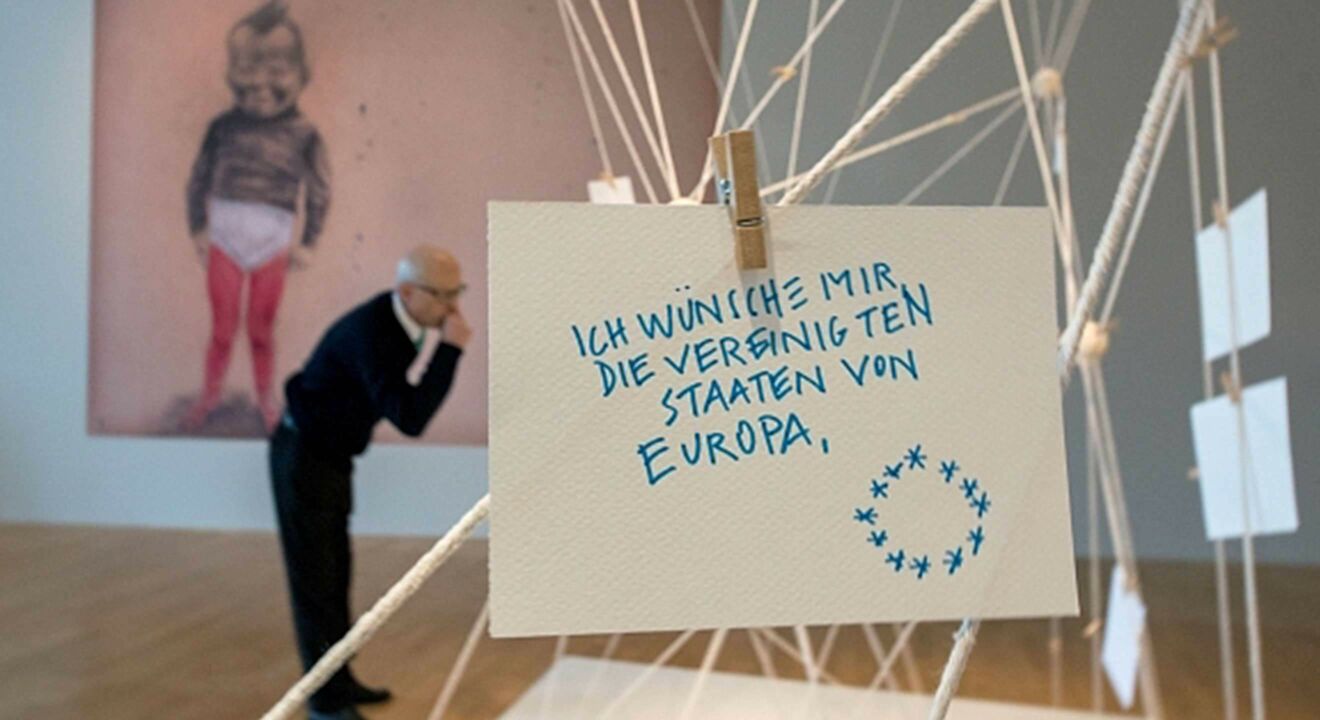 ICH WÜNSCHE MIR,
DIE VEREINIGTEN
STAATEN VON
EUROPA,